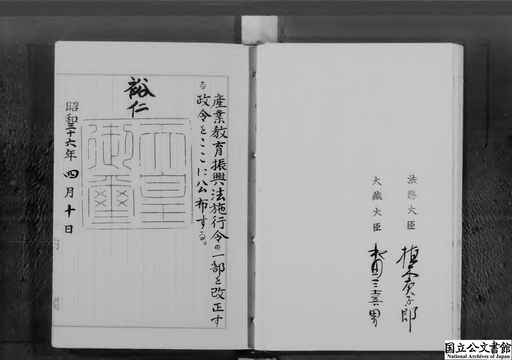 法務大臣 植木庚子郎
大蔵大臣
産業教育振興法施行令の一部を改正す
る政令をここに公布する。
裕仁
天皇
御璽
昭和三十六年 四月十日
国立公文書館
National Archives of Japan